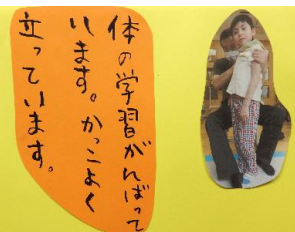 体の学習がんばって
います。かっこよく
立っています。